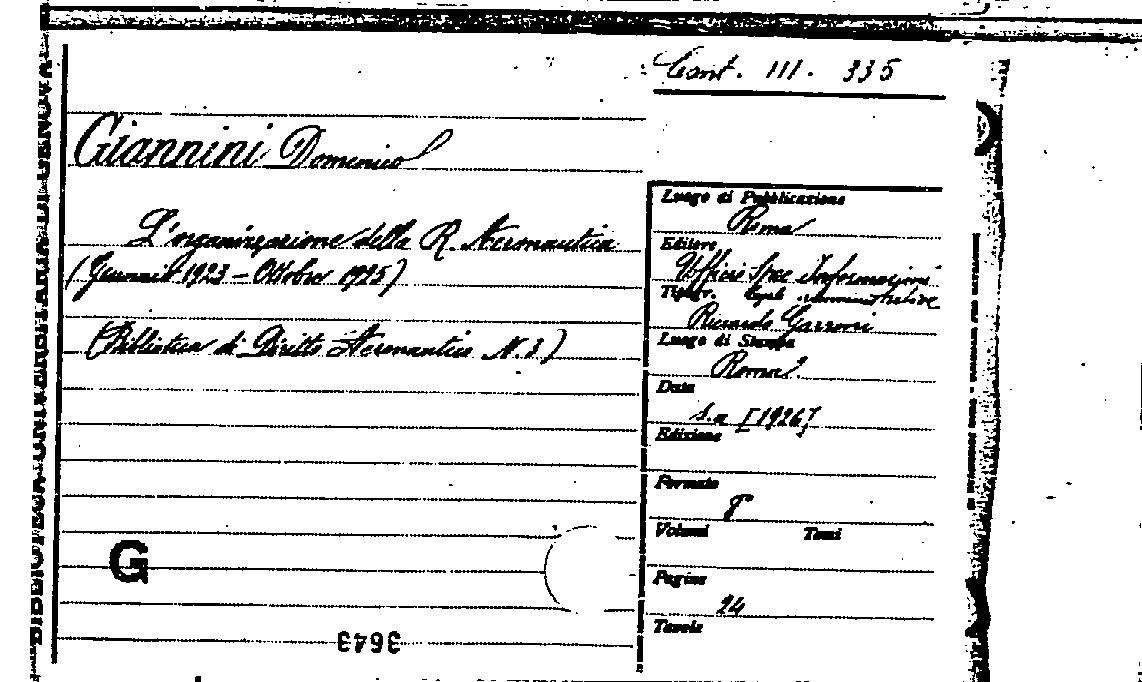 BIBLIOTECA UNIVERSITARIA DI GENOVA
Cont. III. 335
Giannini Domenico
L'organizzazione della R. Aeronautica
(Gennaio 1923 - Ottobre 1925)
(Biblioteca di Diritto Aeronautico N. 3)
Luogo di Pubblicazione
Roma
Editore
Ufficio Spec Informazioni
legali amministrative
Tipogr.
Riccardo Garroni
Luogo di Stampa
Roma
Data
s.a [1926]
Edizione
Formato
8°
Volumi Tomi
Pagine
24
Tavole
G
3643